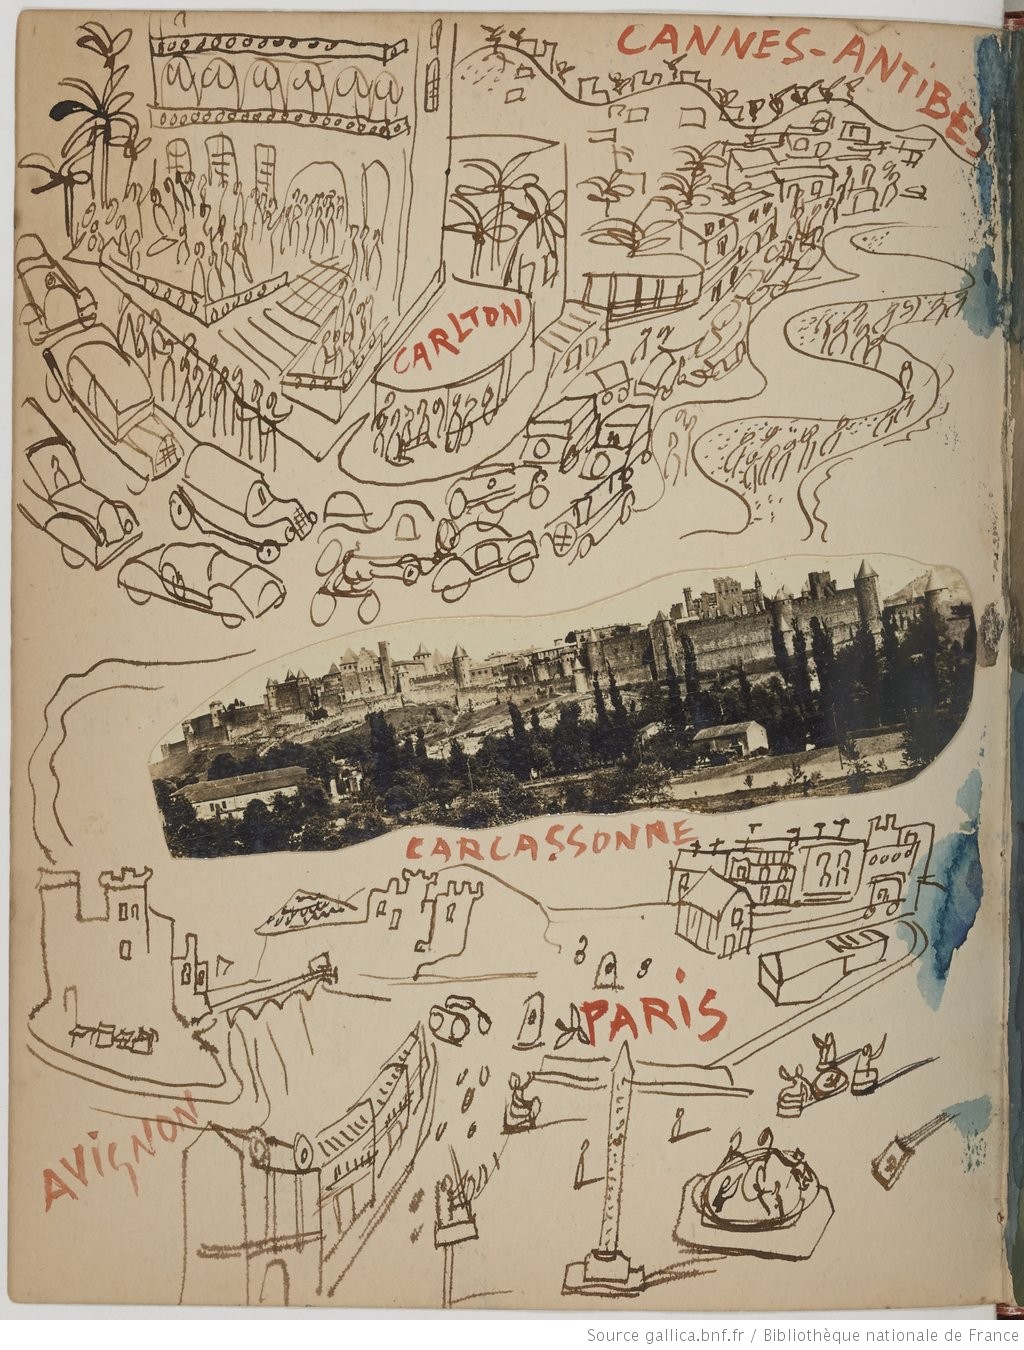 CANNES-ANTIBES
CARLTON
CARCASSONNE
PARiS
AViGNON
Source gallica.bnf.fr / Bibliothèque nationale de France